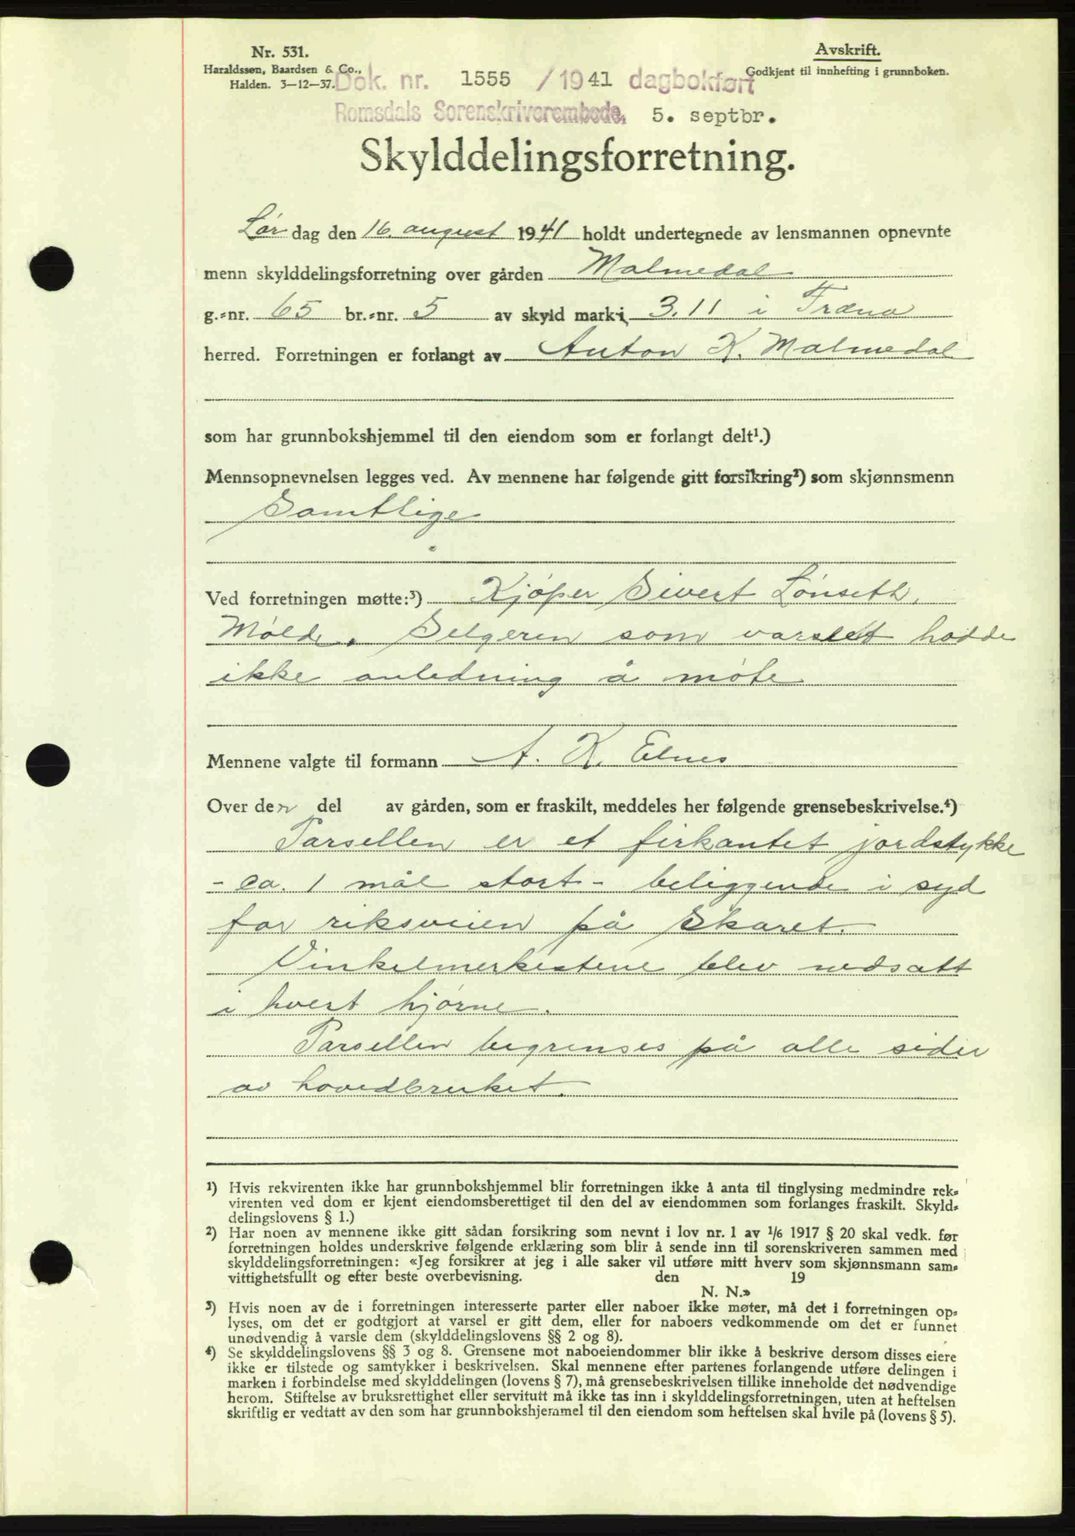 Nr. 531.
Haraldssen, Baardsen & Co.,
Halden. 3—12—37.
Avskrift.
Godkjent til innhefting i grunnboken.
Dok. nr. 1555 / 1941 dagbokført
Romsdals Sorenskriverembede, 5. septbr.
Skylddelingsforretning.
Lør dag den 16. august 1941 holdt undertegnede av lensmannen opnevnte
menn skylddelingsforretning over gården Malmedal
g.-nr. 65 br.-nr. 5 av skyld mark 3.11 i Fræna
herred. Forretningen er forlangt av Anton K. Malmedal
som har grunnbokshjemmel til den eiendom som er forlangt delt¹.)
Mennsopnevnelsen legges ved. Av mennene har følgende gitt forsikring²) som skjønnsmenn
Samtlige
Ved forretningen møtte:³) Kjøper Sivert Lønseth,
Molde. Selgeren som varslet hadde
ikke anledning å møte
Mennene valgte til formann A. K. Elnes
Over den del av gården, som er fraskilt, meddeles her følgende grensebeskrivelse.⁴)
Parsellen er et firkantet jordstykke
- ca. 1 mål stort - beliggende i syd
for riksveien på Skaret.
Vinkelmerkestene blev nedsatt
i hvert hjørne.
Parsellen begrenses på alle sider
av hovedbruket.
¹) Hvis rekvirenten ikke har grunnbokshjemmel blir forretningen ikke å anta til tinglysing medmindre rek-
virenten ved dom er kjent eiendomsberettiget til den del av eiendommen som forlanges fraskilt. Skyld-
delingslovens § 1.)
²) Har noen av mennene ikke gitt sådan forsikring som nevnt i lov nr. 1 av 1/6 1917 § 20 skal vedk. før
forretningen holdes underskrive følgende erklæring som blir å sende inn til sorenskriveren sammen med
skylddelingsforretningen: «Jeg forsikrer at jeg i alle saker vil utføre mitt hverv som skjønnsmann sam-
vittighetsfullt og efter beste overbevisning. den 19
N. N.»
³) Hvis noen av de i forretningen interesserte parter eller naboer ikke møter, må det i forretningen op-
lyses, om det er godtgjort at varsel er gitt dem, eller for naboers vedkommende om det er funnet
unødvendig å varsle dem (skylddelingslovens §§ 2 og 8).
⁴) Se skylddelingslovens §§ 3 og 8. Grensene mot naboeiendommer blir ikke å beskrive dersom disses eiere
ikke er tilstede og samtykker i beskrivelsen. Skal mennene efter partenes forlangende utføre delingen i
marken i forbindelse med skylddelingen (lovens § 7), må grensebeskrivelsen tillike inneholde det nødvendige
herom. Stiftelse av bruksrettighet eller servitutt må ikke tas inn i skylddelingsforretningen, uten at heftelsen
skriftlig er vedtatt av den som har grunnbokshjemmel til den eiendom som heftelsen skal hvile på (lovens § 5).